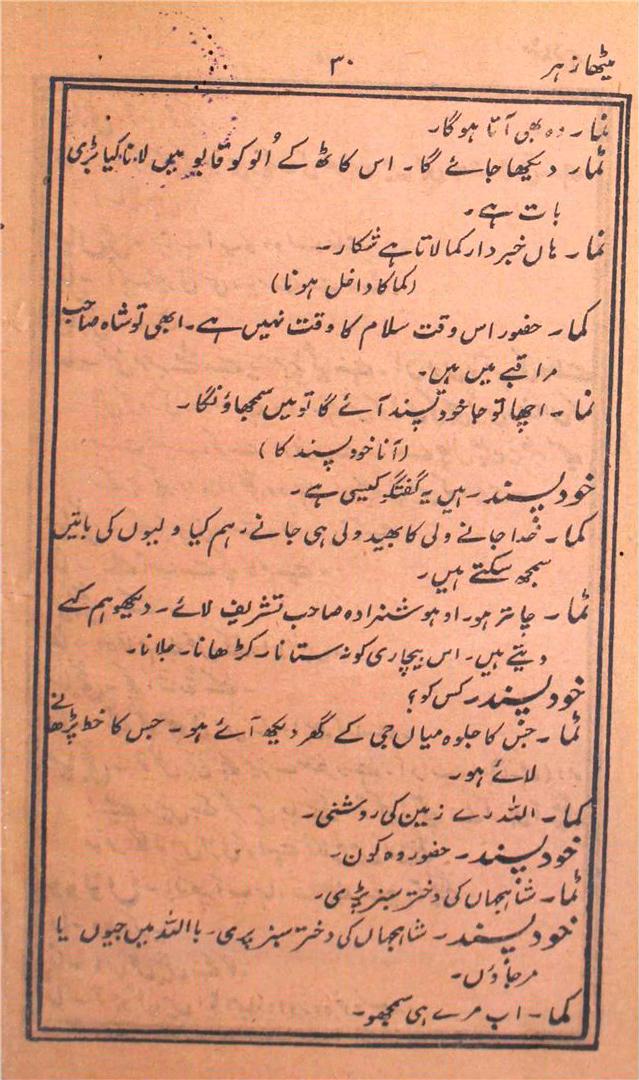 میٹھا زہر ۳۰
نما۔ وہ بھی آتا ہوگا۔
ثما۔ دیکھا جائے گا۔ اس کاٹھ کے اُلو کو قابو میں لانا کیا بڑی
بات ہے۔
نما۔ ہاں خبردار کما لاتا ہے شکار۔
(کما کا داخل ہونا)
کما۔ حضور اس وقت سلام کا وقت نہیں ہے۔ ابھی تو شاہ صاحب
مراقبے میں ہیں۔
نما۔ اچھا تو جا خود پسند آئے گا تو میں سمجھاؤنگا۔
(آنا خود پسند کا)
خود پسند۔ ہیں یہ گفتگو کیسی ہے۔
کما۔ خدا جانے ولی کا بھید ولی ہی جانے۔ ہم کیا ولیوں کی باتیں
سمجھ سکتے ہیں۔
ثما۔ چاتر ہو۔ اوہو شہزادہ صاحب تشریف لائے۔ دیکھو ہم کہے
دیتے ہیں۔ اس بیچاری کو نہ ستانا۔ کڑھانا۔ جلانا۔
خود پسند۔ کس کو؟
ثما۔ جس کا جلوہ میاں جی کے گھر دیکھ آئے ہو۔ جس کا خط پڑھانے
لائے ہو۔
کما۔ اللہ رے زمین کی روشنی۔
خود پسند۔ حضور وہ کون۔
ثما۔ شاہجہاں کی دختر سبز پری۔
خود پسند۔ شاہجہاں کی دختر سبز پری۔ یا اللہ میں جیوں یا
مر جاؤں۔
کما۔ اب مرے ہی سمجھو۔